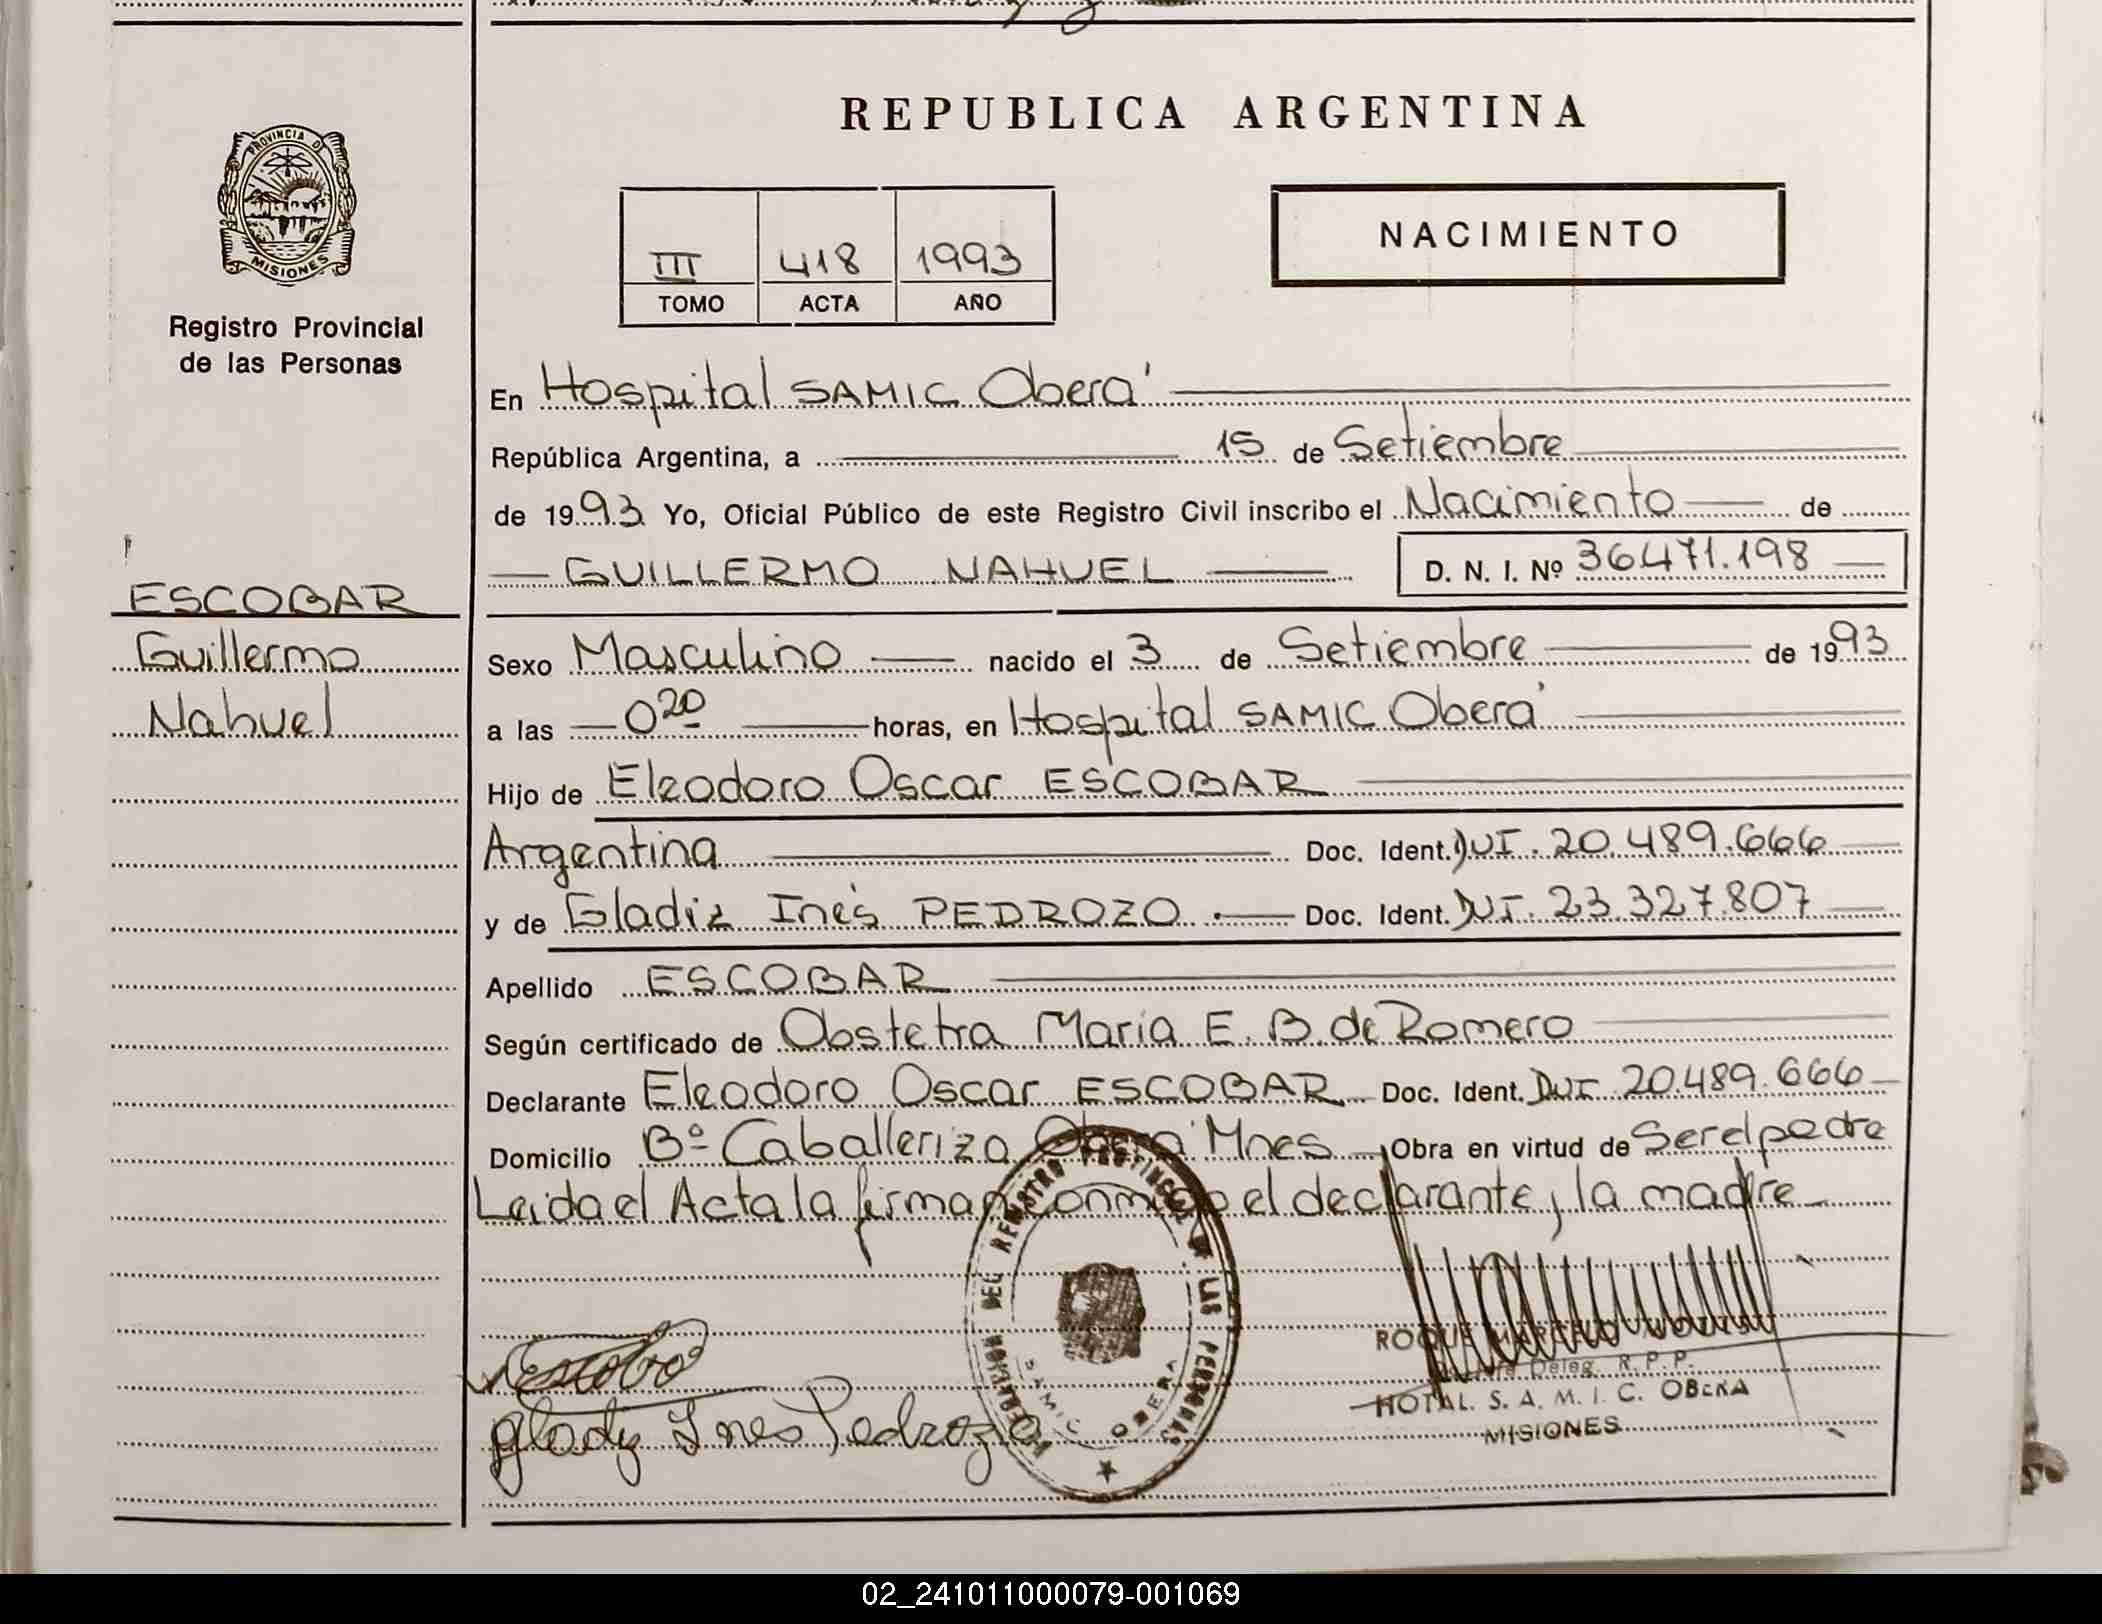 REPUBLICA ARGENTINA
PROVINCIA D
MISIONES
Registro Provincial
de las Personas
III 418 1993
TOMO ACTA AÑO
NACIMIENTO
En Hospital SAMIC Oberá
República Argentina, a 15 de Setiembre
de 1993 Yo, Oficial Público de este Registro Civil inscribo el Nacimiento de
GUILLERMO NAHUEL D. N. I. Nº 36471.198
ESCOBAR
Guillermo
Nahuel
Sexo Masculino nacido el 3 de Setiembre de 1993
a las 0 20 horas, en Hospital SAMIC Oberá
Hijo de Eleodoro Oscar ESCOBAR
Argentina Doc. Ident. DNI. 20.489.666
y de Gladiz Inés PEDROZO Doc. Ident. DNI. 23.327.807
Apellido ESCOBAR
Según certificado de Obstetra Maria E. B. de Romero
Declarante Eleodoro Oscar ESCOBAR Doc. Ident. DNI 20.489.666
Domicilio Bº Caballeriza Oberá Mnes Obra en virtud de Ser el padre
Leida el Acta la firman conmigo el declarante y la madre
DEL REGISTRO PROVINCIAL DE LAS PERSONAS
SAMIC OBERA
glady Ines Pedrozo
ROQUE
Deleg. R. P. P.
HOTAL. S. A. M. I. C. OBERA
MISIONES
02_241011000079-001069